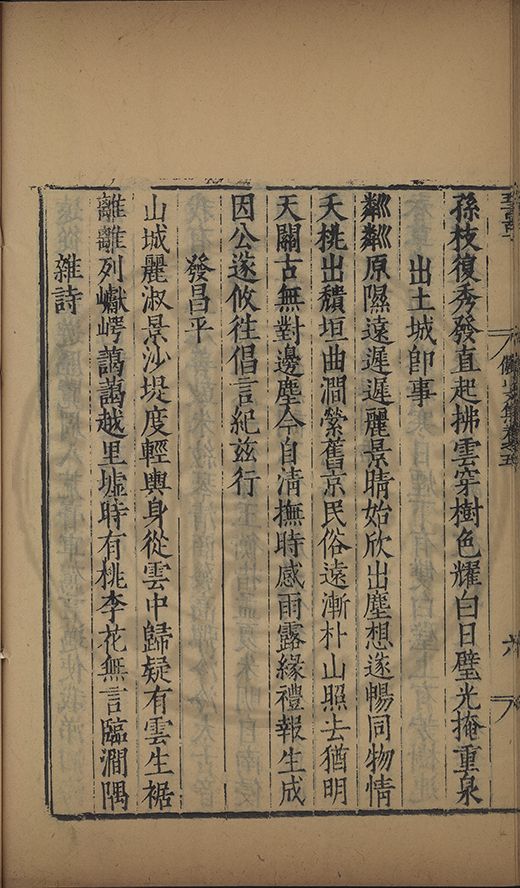 孫枝復秀發直起拂雲穿樹色耀白日璧光掩重泉
出土城卽事
鄰鄰原隰遠遲遲麗景晴始欣出塵想遂暢同物情
夭桃出積垣曲澗縈舊京民俗遠漸朴山照去猶明
天關古無對邊塵今自淸撫時感雨露緣禮報生成
因公遂攸徃倡言紀兹行
發昌平
山城麗淑景沙堤度輕輿身從雲中歸疑有雲生裾
離離列巘崿藹藹越里墟時有桃李花無言臨澗隅
雜詩